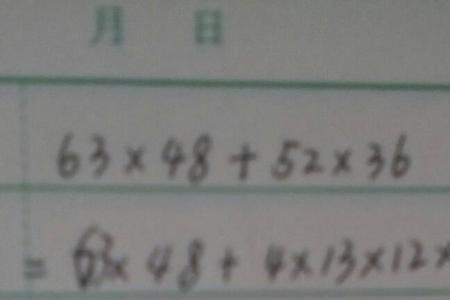 月 日
63×48+52×36
=63×48+4×13×12×